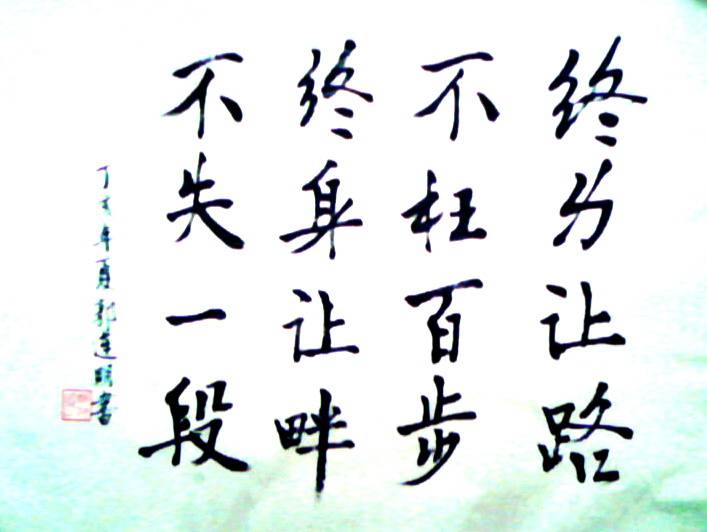 终为让路
不枉百步
终身让畔
不失一段
丁亥年夏郭连明书